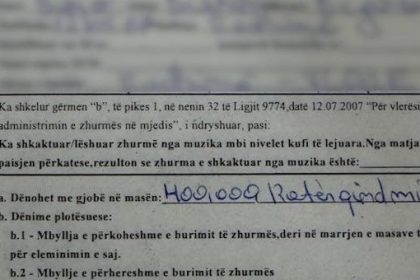 Ka shkelur gërmen “b”, të pikes 1, në nenin 32 të Ligjit 9774,date 12.07.2007 “Për vlerësi
administrimin e zhurmës në mjedis”, i ndryshuar, pasi:
Ka shkaktuar/lëshuar zhurmë nga muzika mbi nivelet kufi të lejuara.Nga matja
paisjen përkatese,rezulton se zhurma e shkaktuar nga muzika është:
a. Dënohet me gjobë në masën: 400,000 Katërqind mi
b. Dënime plotësuese:
b.1 - Mbyllja e përkoheshme e burimit të zhurmës,deri në marrjen e masave t
për eleminimin e saj.
b.2 - Mbyllja e përhereshme e burimit të zhurmës